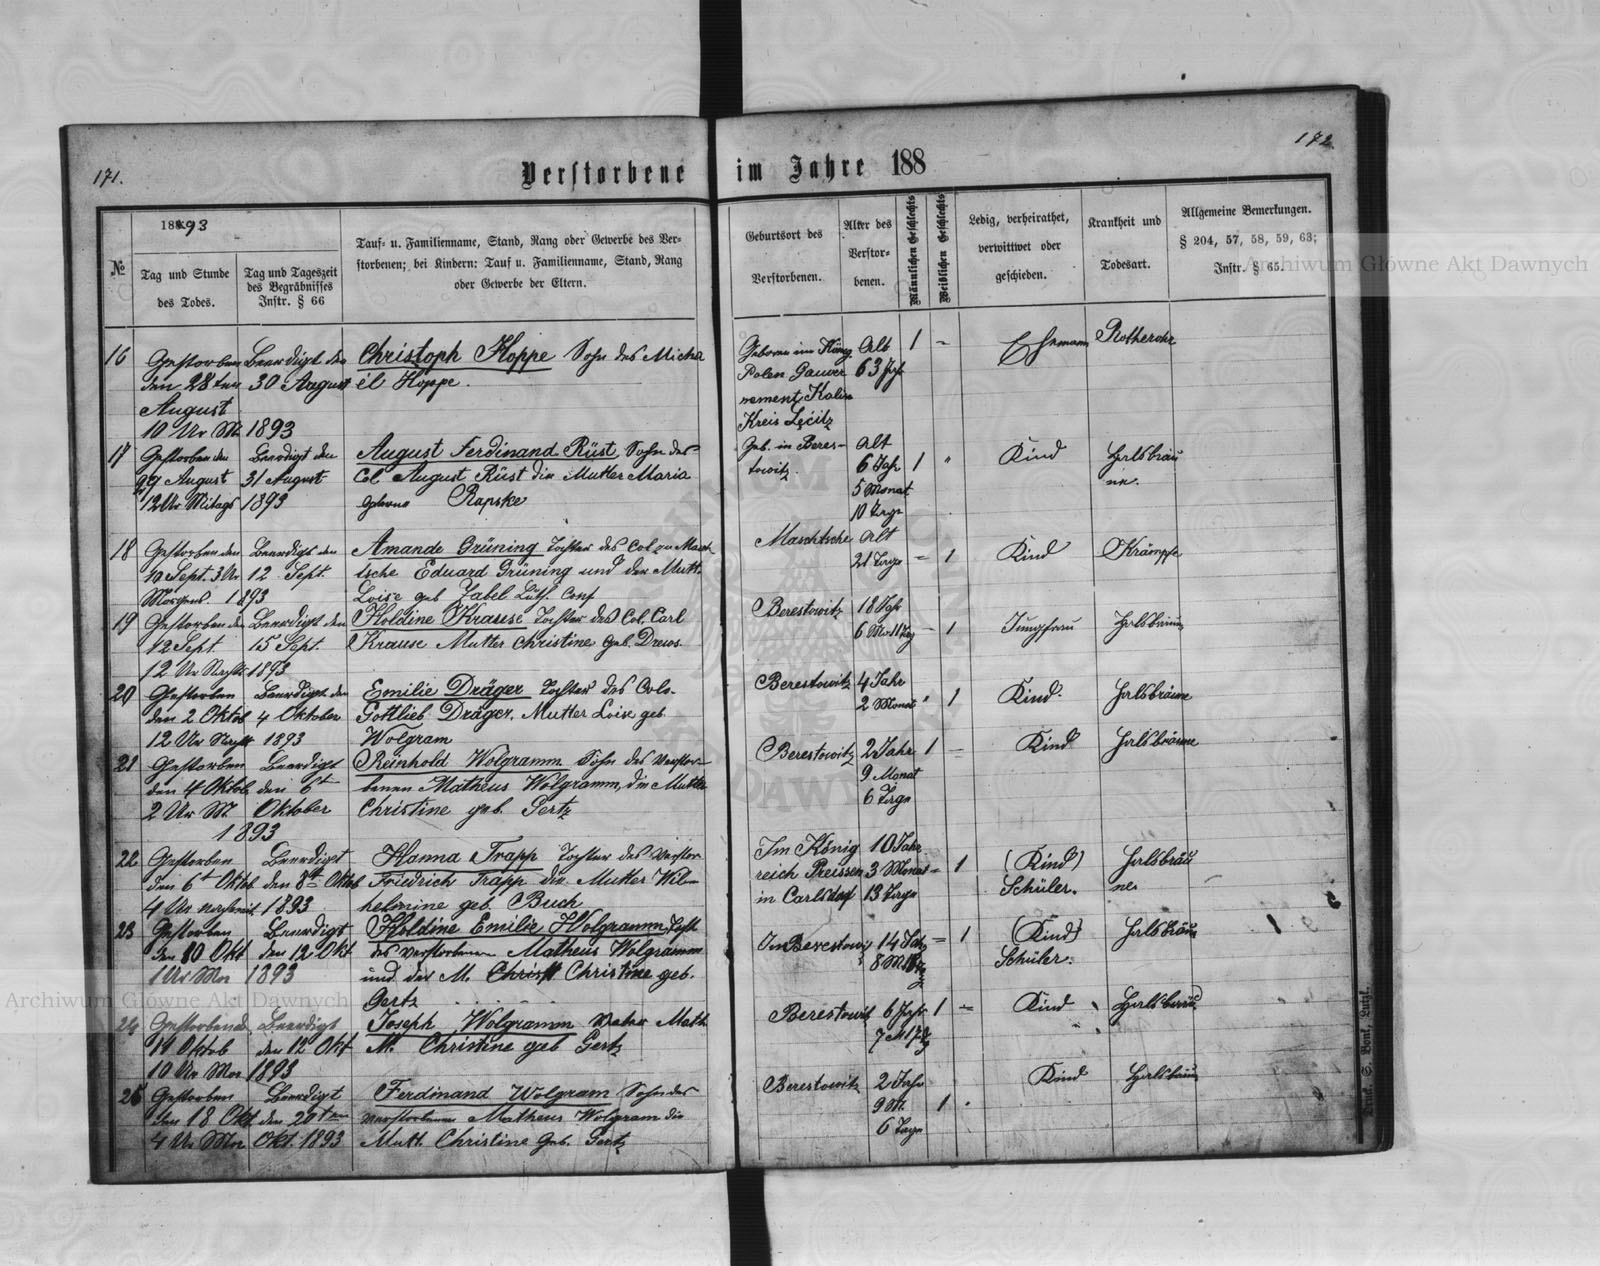 171.
172.
Verstorbene im Jahre 188
1893
№
Tag und Stunde
des Todes.
Tag und Tageszeit
des Begräbnisses
Instr. § 66
Tauf- u. Familienname, Stand, Rang oder Gewerbe des Ver-
storbenen; bei Kindern: Tauf u. Familienname, Stand, Rang
oder Gewerbe der Eltern.
Geburtsort des
Verstorbenen.
Alter des
Verstor-
benen.
Männlichen Geschlechts
Weiblichen Geschlechts
Ledig, verheirathet,
verwittwet oder
geschieden.
Krankheit und
Todesart.
Allgemeine Bemerkungen.
§ 204, 57, 58, 59, 63;
Instr. § 65.
Archiwum Główne Akt Dawnych
16
Gestorben
den 28ten
August
10 Ur M.
Beerdigt den
30 August
1893
Christoph Hoppe Sohn des Micha
el Hoppe.
Geboren im König
Polen Gouver
nement Kalis
Kreis
Alt
63 Jah
1
Ehemann
17
Gestorben den
29 August
12 Ur Mitags
Beerdigt den
31 August
1893
August Ferdinand Rüst Sohn des
Col August Rüst die Mutter Maria
geborene Rapske
Geb. in Beres-
towitz.
Alt
6 Jahr
5 Monat
10 Tage
1
Kind
Halsbräu
ne.
18
Gestorben den
10 Sept. 3 Ur
Morgens
Beerdigt den
12 Sept.
1893
Amande Grüning Tochter des Col. zu Masch-
tsche Eduard Grüning und der Mutt.
Loise geb Zabel Luth. Conf
Maschtsche
Alt
21 Tage
1
Kind
Krämpfe
19
Gestorben den
12 Sept.
12 Ur Nachts
Beerdigt den
15 Sept.
1893
Holdine Krause Tochter des Col. Carl
Krause Mutter Christine geb. Drews.
Berestowitz
18 Jahr
6 Mo 11 Tag
1
Jungfrau
Halsbräune
20
Gestorben
den 2 Oktob
12 Ur Nacht
Beerdigt den
4 Oktober
1893
Emilie Dräger Tochter des Colo.
Gottlieb Dräger. Mutter Loise geb.
Wolgram
Berestowitz
4 Jahr
2 Monat
1
Kind.
Halsbräune
21
Gestorben
den 4 Oktob
2 Ur M.
Beerdigt
den 6t
Oktober
1893
Reinhold Wolgramm Sohn des Verstor-
benen Matheus Wolgramm, die Mutter
Christine geb. Gertz
Berestowitz
2 Jahr
9 Monat
6 Tage
1
Kind
Halsbräune
22
Gestorben
den 6t Oktob
4 Ur
Beerdigt
den 8t Oktob
1893
Hanna Trapp Tochter des Verstor
Friedrich Trapp die Mutter Wil-
helmine geb. Buch
Im König
reich Preissen
in Carlsdorf
10 Jahr
3 Monat
13 Tage
1
(Kind)
Schüler.
Halsbräu
ne
23
Gestorben
den 10 Okt
1 Ur Mor
Beerdigt
den 12 Okt
1893
Holdine Emilie Wolgramm Tocht
des Verstorbenen Matheus Wolgramm
und der M. Christ Christine geb.
Gertz
Im Berestowi
14 Jah
1
(Kind)
Schüler.
Halsbräu
24
Gestorben d.
11 Oktob
10 Ur Mor
Beerdigt
den 12 Okt
1893
Joseph Wolgramm Vater Math.
M. Christine geb Gertz
Berestowitz
6 Jahr
1
Kind
Halsbräu
25
Gestorben
den 18 Okt
4 Ur Mor
Beerdigt
den 20ten
Okt. 1893
Ferdinand Wolgram Sohn des
Verstorbenen Matheus Wolgram die
Mutt. Christine Geb. Gertz
Berestowitz
2 Jahr
9 M.
6 Tage
1
Kind
Halsbräun
Archiwum Główne Akt Dawnych
Druck. S. Bonk, Lutzk.